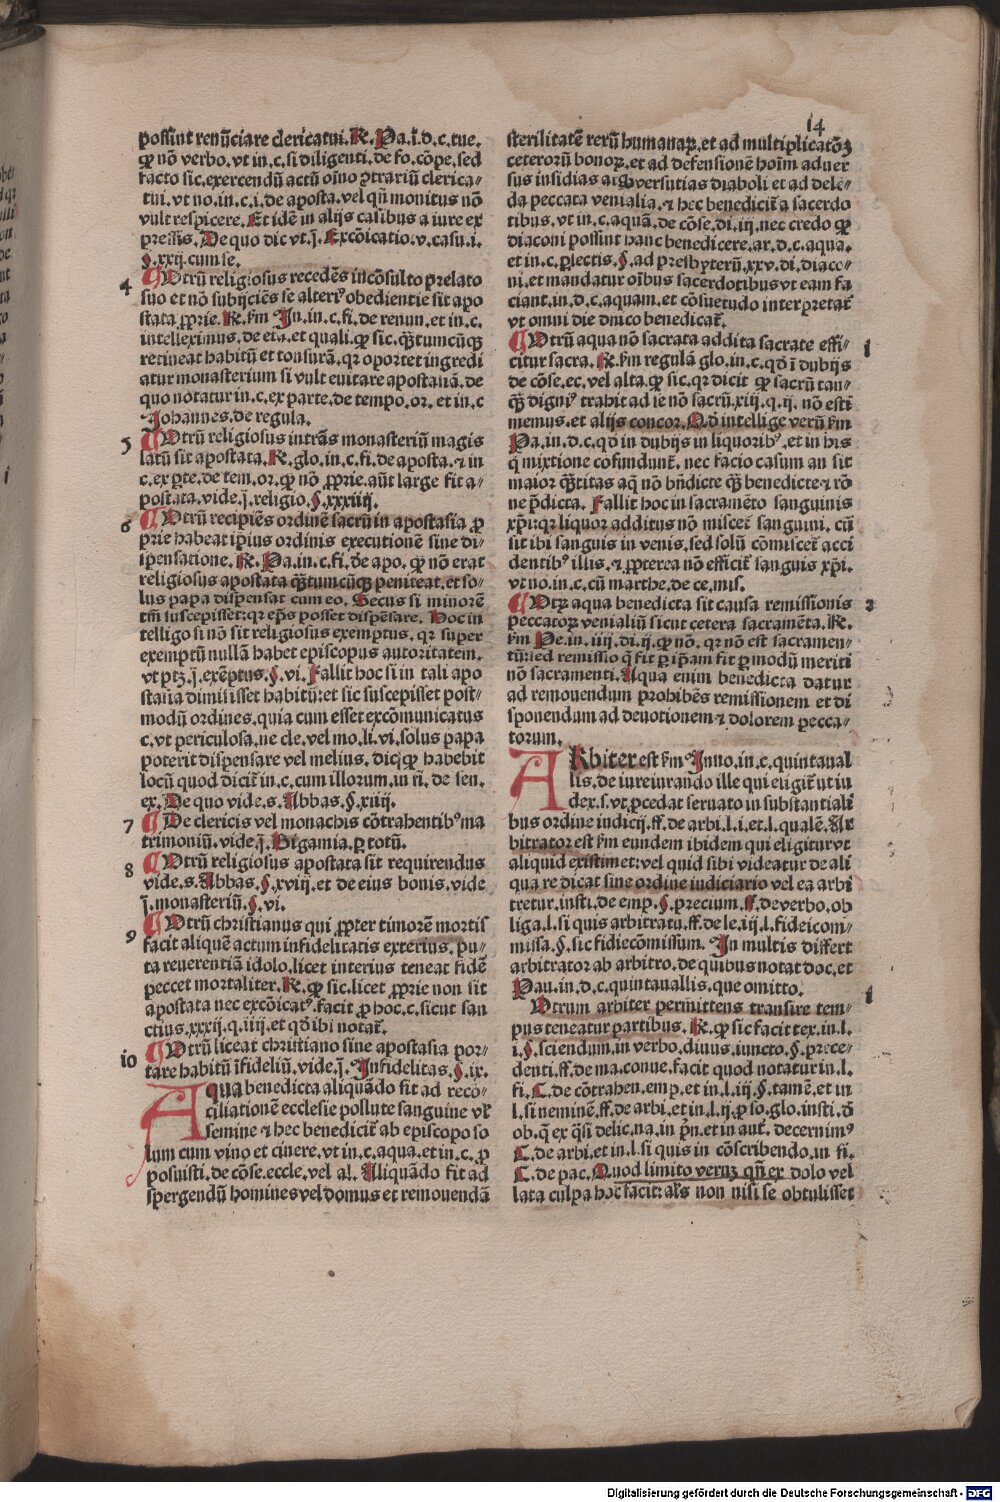 14
possint renũciare clericatui. R̃. Pa. ĩ. d. c. tue.
qꝙ nõ verbo. vt in. c. si diligenti. de fo. cõpe. sed
facto sic. exercendũ actũ oĩno ꝯtrariũ clerica-
tui. vt no. in. c. i. de aposta. vel qñ monitus nõ
vult respicere. Et idẽ in alijs casibus a iure ex
pressis. De quo dic vt. j̃. Excõicatio. v. casu. i.
§. xxij. cum se.
4 Utrũ religiosus recedẽs incõsulto prelato
suo et nõ subijciẽs se alteriꝰ obedientie sit apo
stata ꝓprie. R̃. ẜm In. in. c. fi. de renun. et in. c.
intelleximus. de eta. et quali. ꝙ sic. q̃tumcũqꝫ
retineat habitũ et tonsurã. qꝛ oportet ingredi
atur monasterium si vult euitare apostasiã. de
quo notatur in. c. ex parte. de tempo. or. et in. c
Johannes. de regula.
5 Utrũ religiosus intrãs monasteriũ magis
latũ sit apostata. R̃. glo. in. c. fi. de aposta. ⁊ in
c. ex ꝑte. de tem. or. ꝙ nõ ꝓprie. aũt large fit a-
postata. vide. j̃. religio. §. xxxiiij.
6 Utrũ recipiẽs ordinẽ sacrũ in apostasia ꝓ
prie habeat ipsius ordinis executionẽ sine di-
spensatione. R̃. Pa. in. c. fi. de apo. ꝙ nõ erat
religiosus apostata q̃tumcũqꝫ peniteat. et so-
lus papa dispensat cum eo. Secus si minorẽ
tm̃ suscepisset: qꝛ ep̃s posset dispẽsare. Hoc in
telligo si nõ sit religiosus exemptus. qꝛ super
exemptũ nullã habet episcopus autoritatem.
vt ptꝫ. j̃. exẽptus. §. vi. Fallit hoc si in tali apo
stasia dimisisset habitũ: et sic suscepisset post-
modũ ordines. quia cum esset excõmunicatus
c. vt periculosa. ne cle. vel mo. li. vi. solus papa
poterit dispensare vel melius. dicq̃ꝙ habebit
locũ quod dicit̃ in. c. cum illorum. in fi. de sen.
ex. De quo vide. s. Abbas. §. xiiij.
7 De clericis vel monachis cõtrahentibꝰ ma
trimoniũ. vide. j̃. Bigamia. ꝑ totũ.
8 Utrũ religiosus apostata sit requirendus
vide. s. Abbas. §. xviij. et de eius bonis. vide
j̃. monasteriũ. §. vi.
9 Utrũ christianus qui ꝓpter timorẽ mortis
facit aliquẽ actum infidelitatis exterius. pu-
ta reuerentiã idolo. licet interius teneat fidẽ
peccet mortaliter. R̃. ꝙ sic. licet ꝓprie non sit
apostata nec excõicatꝰ. facit ꝓ hoc. c. sicut san
ctius. xxxij. q. iiij. et qd̃ ibi notat̃.
10 Utrũ liceat christiano sine apostasia por-
tare habitũ ĩfideliũ. vide. j̃. Infidelitas. §. ix.
Aqua benedicta aliquãdo fit ad recõ-
ciliationẽ ecclesie pollute sanguine vl̃
semine ⁊ hec benedicit̃ ab episcopo so
lum cum vino et cinere. vt in. c. aqua. et in. c. ꝓ
posuisti. de cõse. eccle. vel al. Aliquãdo fit ad
spergendũ homines vel domus et remouendã
sterilitatẽ rerũ humanaꝝ. et ad multiplicatõꝫ
ceterorũ bonoꝝ. et ad defensionẽ hoĩm aduer
sus insidias atqꝫ versutias diaboli et ad delẽ-
da peccata venialia. ⁊ hec benedicit̃ a sacerdo
tibus. vt in. c. aquã. de cõse. di. iij. nec credo ꝙ
diaconi possint hanc benedicere. ar. d. c. aqua.
et in. c. ꝑlectis. §. ad presbyterũ. xxv. di. diaco-
ni. et mandatur oĩbus sacerdotibus vt eam fa
ciant. in. d. c. aquam. et cõsuetudo interpretat̃
vt omni die dnico benedicat̃.
1 Utrũ aqua nõ sacrata addita sacrate effi-
citur sacra. R̃. ẜm regulã glo. in. c. qd̃ ĩ dubijs
de cõse. ec. vel alta. ꝙ sic. qꝛ dicit ꝙ sacrũ tan-
q̃ digniꝰ trahit ad se nõ sacrũ. xiij. q. ij. nõ esti
memus. et alijs concor. Qd̃ intellige verũ ẜm
Pa. in. d. c. qd̃ in dubijs in liquoribꝰ. et in his
q̃ mixtione cõfundunt̃. nec facio casum an sit
maior q̃titas aq̃ nõ bñdicte q̃ benedicte ⁊ rõ
ne p̃dicta. Fallit hoc in sacramẽto sanguinis
xp̃i: qꝛ liquor additus nõ miscet̃ sanguini. cũ
sit ibi sanguis in venis. sed solũ cõmiscet̃ acci
dentibꝰ illis. ⁊ ꝓpterea nõ efficit̃ sanguis xp̃i.
vt no. in. c. cũ marthe. de ce. mis.
2 Utrꝫ aqua benedicta sit causa remissionis
peccatorꝫ venialiũ sicut cetera sacramẽta. R̃.
ẜm Pe. in. iiij. di. ij. ꝙ nõ. qꝛ nõ est sacramen-
tũ: sed remissio q̃ fit ꝑ ip̃am fit ꝑ modũ meriti
nõ sacramenti. Aqua enim benedicta datur
ad remouendum prohibẽs remissionem et di
sponendum ad deuotionem ⁊ dolorem pecca-
torum.
ARbiter est ẜm Inno. in. c. quintaual
lis. de iureiurando ille qui eligit̃ ut iu
dex. s. vt ꝓcedat seruato in substantiali
bus ordine iudicij. ff. de arbi. l. i. et. l. qualẽ. Ar
bitrator est ẜm eundem ibidem qui eligitur vt
aliquid existimet: vel quid sibi videatur de ali
qua re dicat sine ordine iudiciario vel ea arbi
tretur. insti. de emp. §. precium. ff. de verbo. ob
liga. l. si quis arbitratu. ff. de le. iij. l. fideicom-
missa. §. sic fidiecõmissum. In multis differt
arbitrator ab arbitro. de quibus notat doc. et
Pau. in. d. c. quintauallis. que omitto.
1 Utrum arbiter permittens transire tem-
pus teneatur partibus. R̃. ꝙ sic facit tex. in. l.
i. §. sciendum. in verbo. diuus. iuncto. §. prece-
denti. ff. de ma. conue. facit quod notatur in. l.
fi. C. de cõtrahen. emp. et in. l. iij. §. tamẽ. et in
l. si neminẽ. ff. de arbi. et in. l. ij. ꝓ so. glo. insti. d̃
ob. q̃ ex q̃si delic. na. in prĩ. et in aut̃. decernimꝰ
C. de arbi. et in. l. si quis in cõscribendo. in fi.
C. de pac. Quod limito veruꝫ qñ ex dolo vel
lata culpa hoc facit: als̃ non nisi se obtulisset
Digitalisierung gefördert durch die Deutsche Forschungsgemeinschaft - DFG